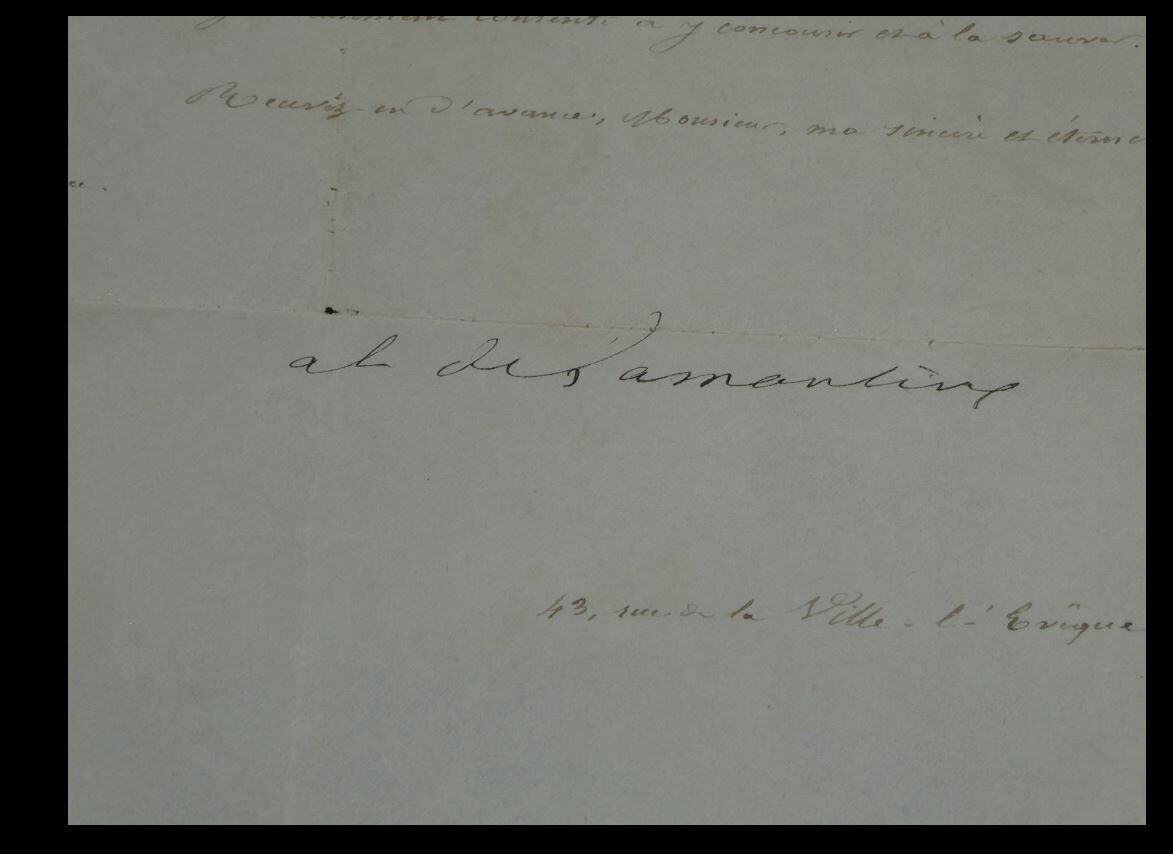 consenti à y concourir et à la sauver.
Recevez-en d'avance, Monsieur, ma sincère et éterne
al de Lamartine
43, rue de la Ville-l'Evêque